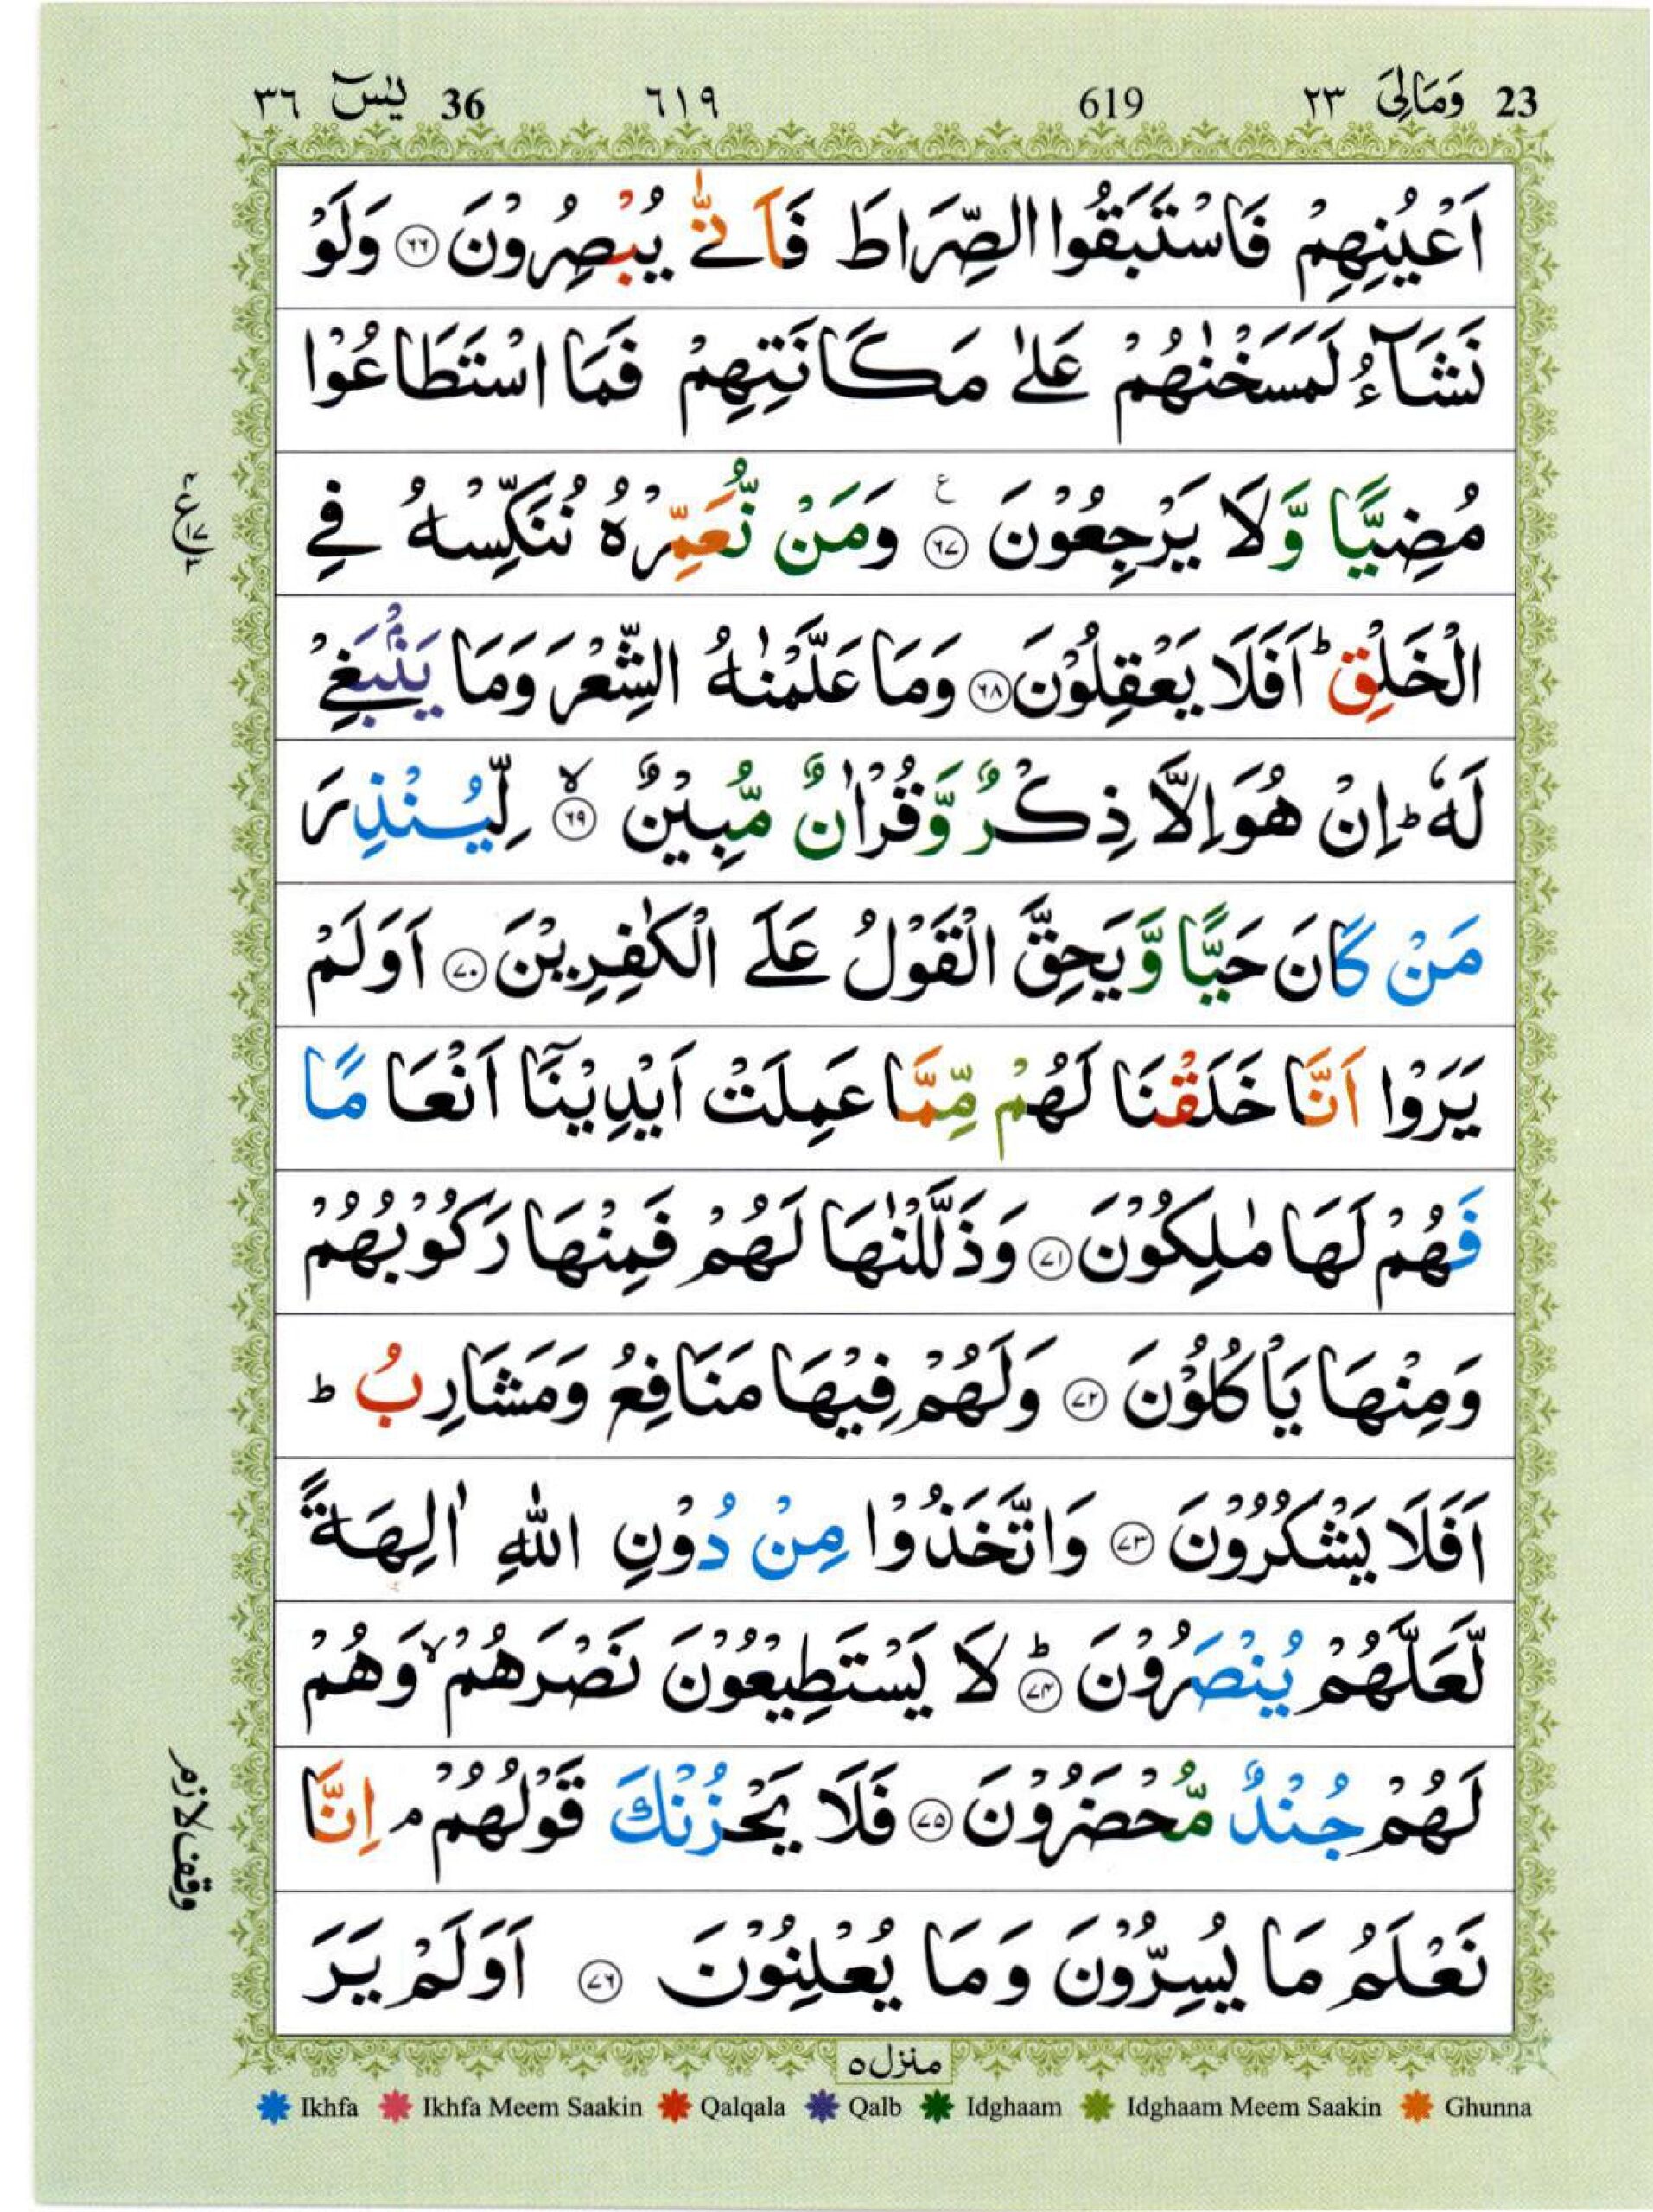 36 يٰسٓ ٣٦ ٦١٩ 619 23 وَمَالِیَ ٢٣
اَعْيُنِهِمْ فَاسْتَبَقُوا الصِّرَاطَ فَاَنّٰى يُبْصِرُوْنَ ۝٦٦ وَلَوْ
نَشَآءُ لَمَسَخْنٰهُمْ عَلٰى مَكَانَتِهِمْ فَمَا اسْتَطَاعُوْا
مُضِيًّا وَّلَا يَرْجِعُوْنَ ۝٦٧ ع وَمَنْ نُّعَمِّرْهُ نُنَكِّسْهُ فِي
الْخَلْقِ ؕ اَفَلَا يَعْقِلُوْنَ ۝٦٨ وَمَا عَلَّمْنٰهُ الشِّعْرَ وَمَا يَنْۢبَغِيْ
لَهٗ ؕ اِنْ هُوَ اِلَّا ذِكْرٌ وَّقُرْاٰنٌ مُّبِيْنٌ ۝٦٩ ۙ لِّيُنْذِرَ
مَنْ كَانَ حَيًّا وَّيَحِقَّ الْقَوْلُ عَلَى الْكٰفِرِيْنَ ۝٧٠ اَوَلَمْ
يَرَوْا اَنَّا خَلَقْنَا لَهُمْ مِّمَّا عَمِلَتْ اَيْدِيْنَآ اَنْعَامًا
فَهُمْ لَهَا مٰلِكُوْنَ ۝٧١ وَذَلَّلْنٰهَا لَهُمْ فَمِنْهَا رَكُوْبُهُمْ
وَمِنْهَا يَاْكُلُوْنَ ۝٧٢ وَلَهُمْ فِيْهَا مَنَافِعُ وَمَشَارِبُ ؕ
اَفَلَا يَشْكُرُوْنَ ۝٧٣ وَاتَّخَذُوْا مِنْ دُوْنِ اللّٰهِ اٰلِهَةً
لَّعَلَّهُمْ يُنْصَرُوْنَ ۝٧٤ ؕ لَا يَسْتَطِيْعُوْنَ نَصْرَهُمْ ۙ وَهُمْ
لَهُمْ جُنْدٌ مُّحْضَرُوْنَ ۝٧٥ فَلَا يَحْزُنْكَ قَوْلُهُمْ ۘ اِنَّا
نَعْلَمُ مَا يُسِرُّوْنَ وَمَا يُعْلِنُوْنَ ۝٧٦ اَوَلَمْ يَرَ
وقف لازم
منزل ٥
Ikhfa Ikhfa Meem Saakin Qalqala Qalb Idghaam Idghaam Meem Saakin Ghunna